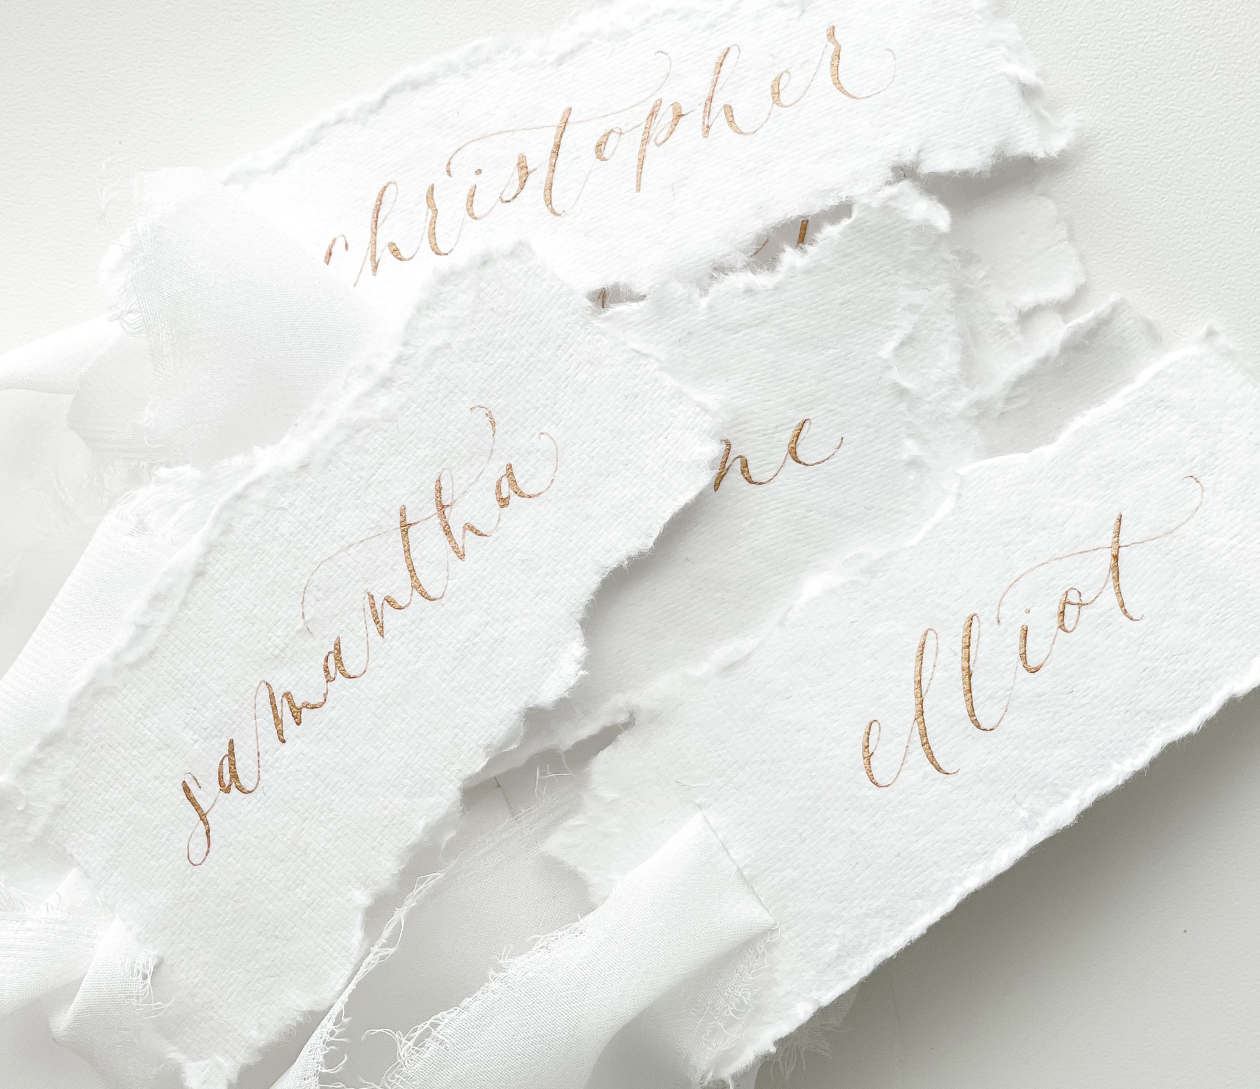 christopher
samantha
ne
elliot